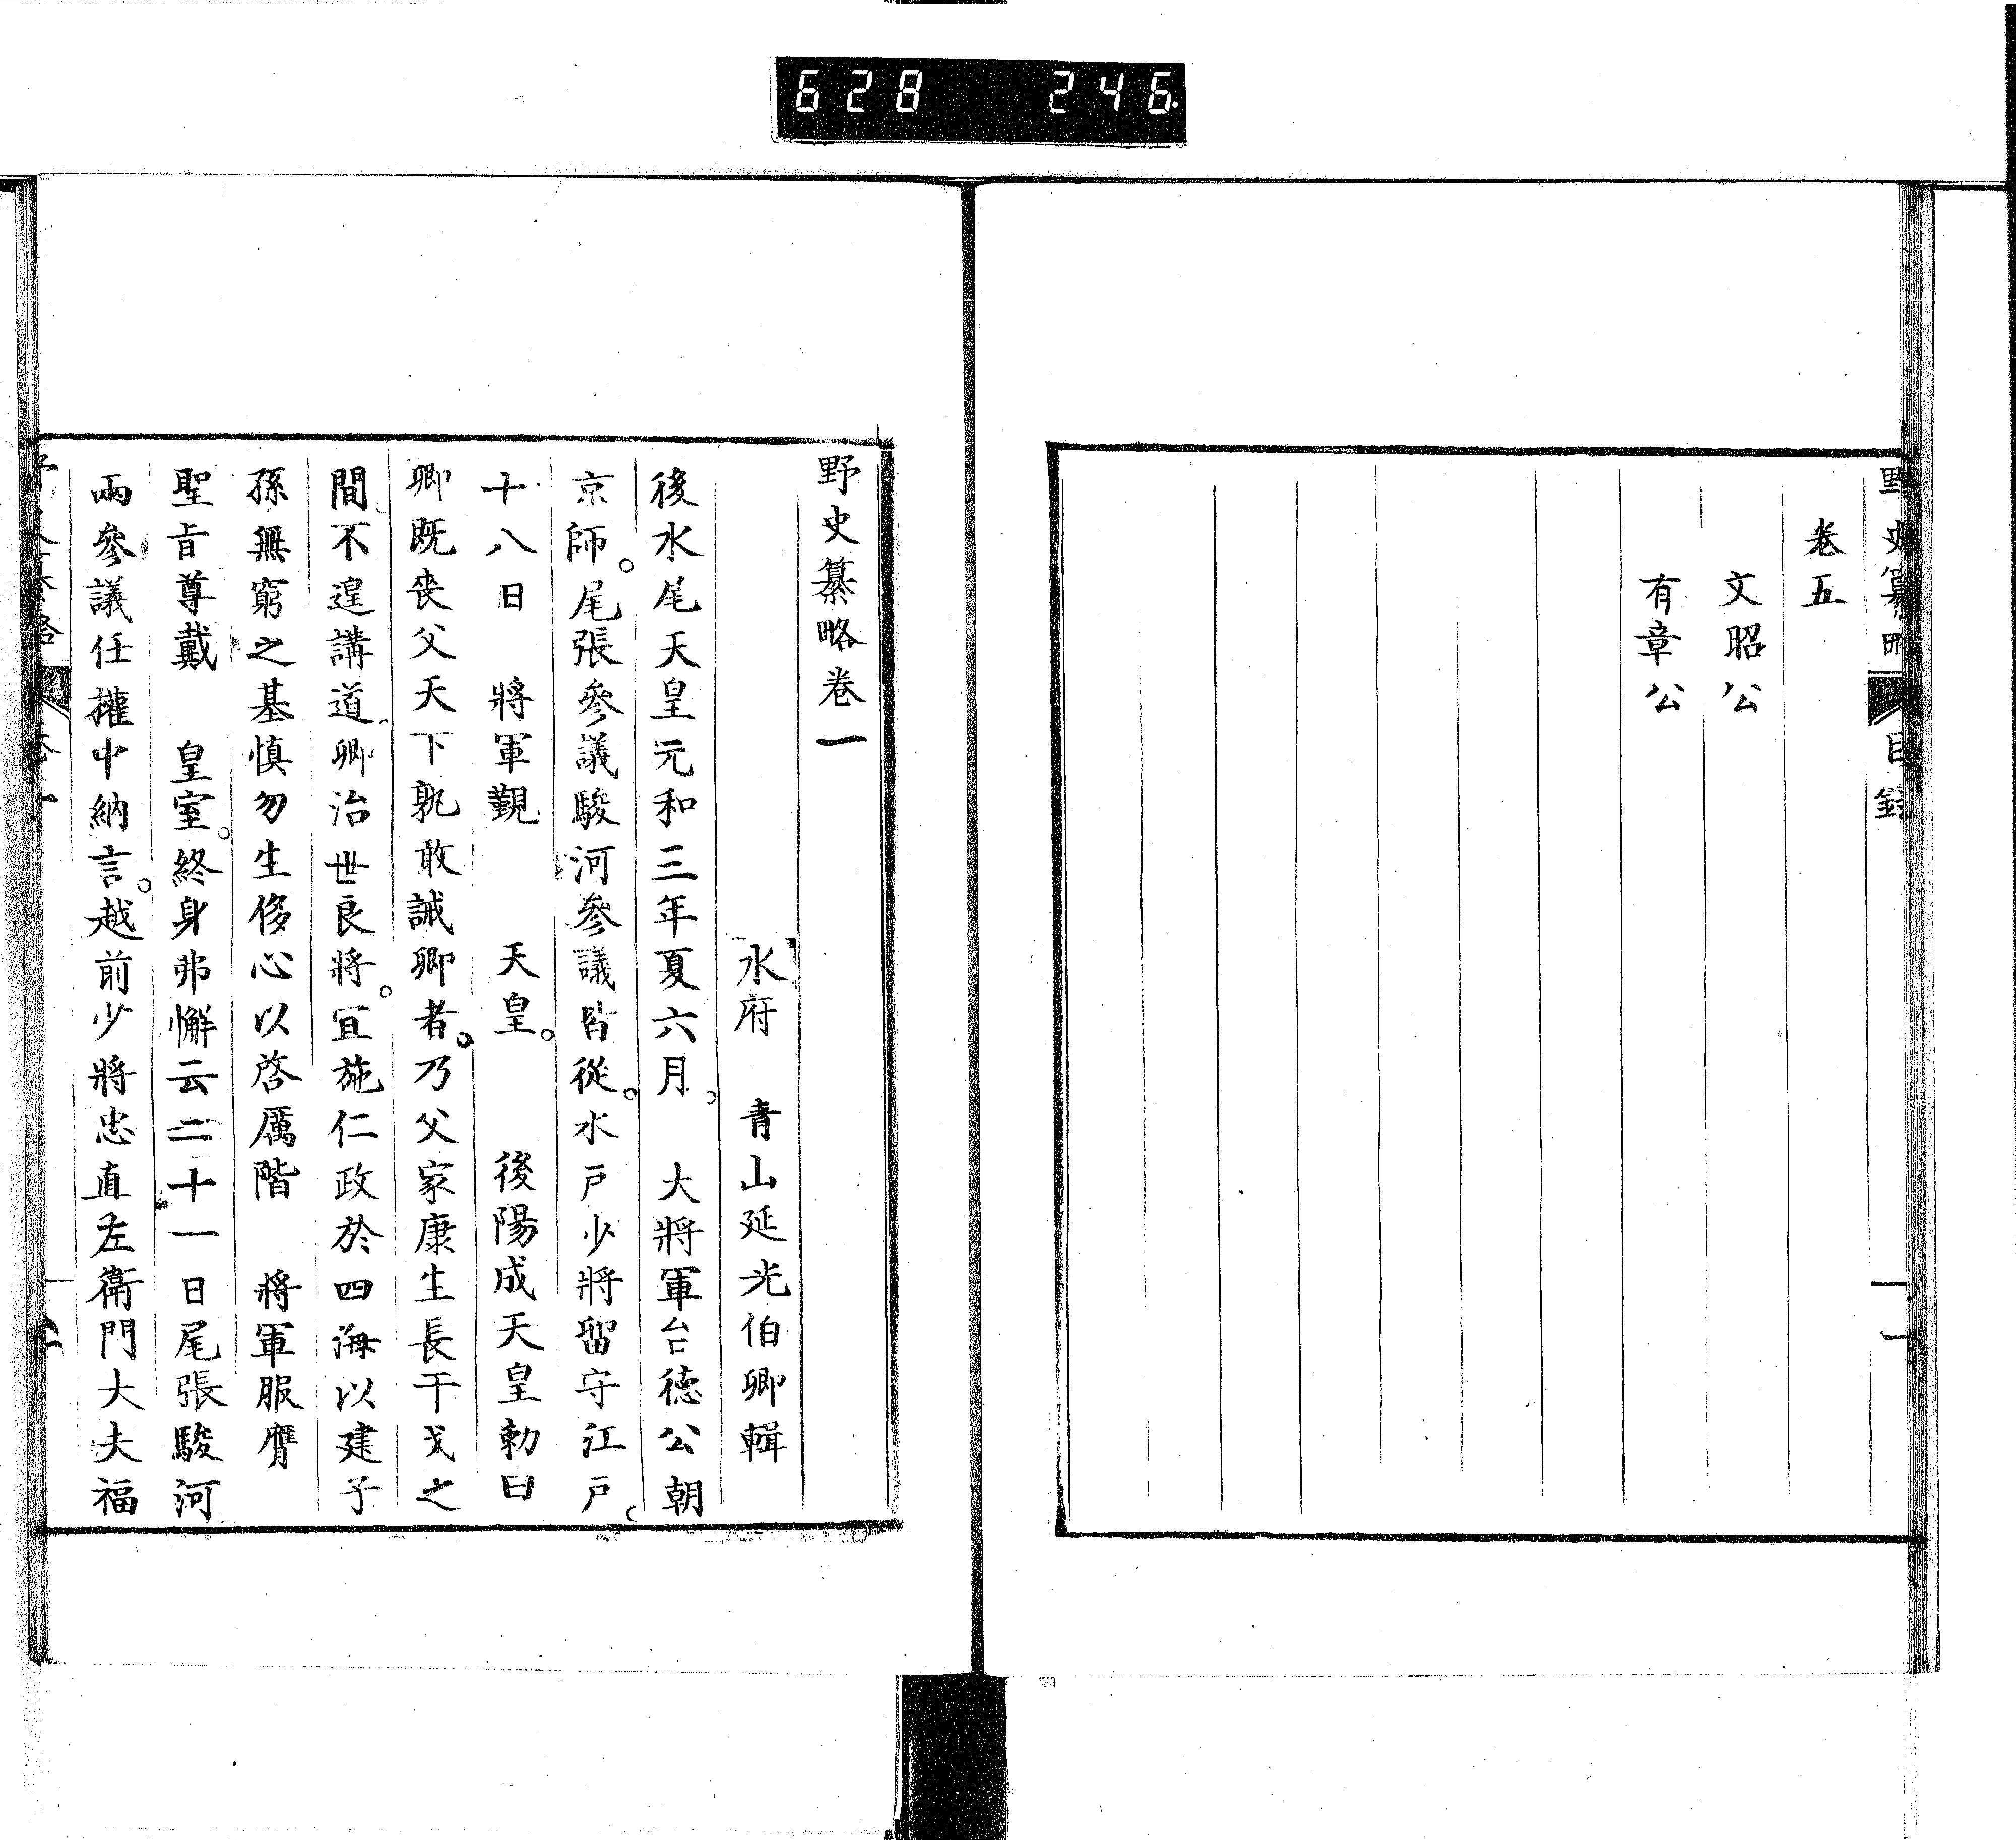 628 246.
野史纂略 目録
卷五
文昭公
有章公
野史纂略卷一
水府 青山延光伯卿輯
後水尾天皇元和三年夏六月。 大將軍台徳公朝
京師。尾張參議駿河參議皆從。水戸少將留守江戸。
十八日 將軍覲 天皇。 後陽成天皇勅曰
卿既喪父天下孰敢誡卿者。乃父家康生長干戈之
間不遑講道卿治世良將。宜施仁政於四海以建子
孫無窮之基慎勿生侈心以啓厲階 將軍服膺
聖旨尊戴 皇室。終身弗懈云二十一日尾張駿河
兩參議任權中納言。越前少將忠直左衞門大夫福